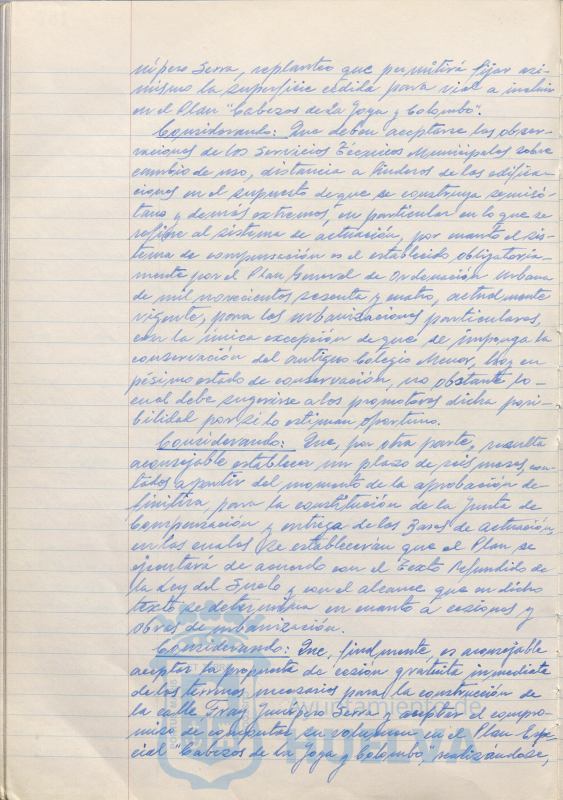 nípero Serra, replanteo que permitirá fijar asi-
mismo la superficie cedida para vial a incluir
en el Plan "Cabezos de la Joya y Colombo".
Considerando: Que deben aceptarse las obser-
vaciones de los Servicios Técnicos Municipales sobre
cambio de uso, distancia a linderos de las edifica-
ciones en el supuesto de que se construya semisó-
tano y demás extremos, en particular en lo que se
refiere al sistema de actuación, por cuanto el sis-
tema de compensación es el establecido obligatoria-
mente por el Plan General de Ordenación Urbana
de mil novecientos sesenta y cuatro, actualmente
vigente, para las urbanizaciones particulares,
con la única excepción de que se imponga la
conservación del antiguo Colegio Menor, hoy en
pésimo estado de conservación, no obstante lo-
cual debe sugerirse a los promotores dicha posi-
bilidad por si lo estiman oportuno.
Considerando: Que, por otra parte, resulta
aconsejable establecer un plazo de seis meses, con-
tados a partir del momento de la aprobación de-
finitiva, para la constitución de la Junta de
Compensación y entrega de las Bases de actuación,
en las cuales se establecerán que el Plan se
ejecutará de acuerdo con el Texto Refundido de
la Ley del Suelo y con el alcance que en dicho
texto se determina en cuanto a cesiones y
obras de urbanización.
Considerando: Que, finalmente, es aconsejable
aceptar la propuesta de cesión gratuita inmediata
de los terrenos necesarios para la construcción de
la calle Fray Junípero Serra y aceptar el compro-
miso de computar su volumen en el Plan Espe-
cial "Cabezos de la Joya y Colombo" realizándose,
Ayuntamiento de
HUELVA